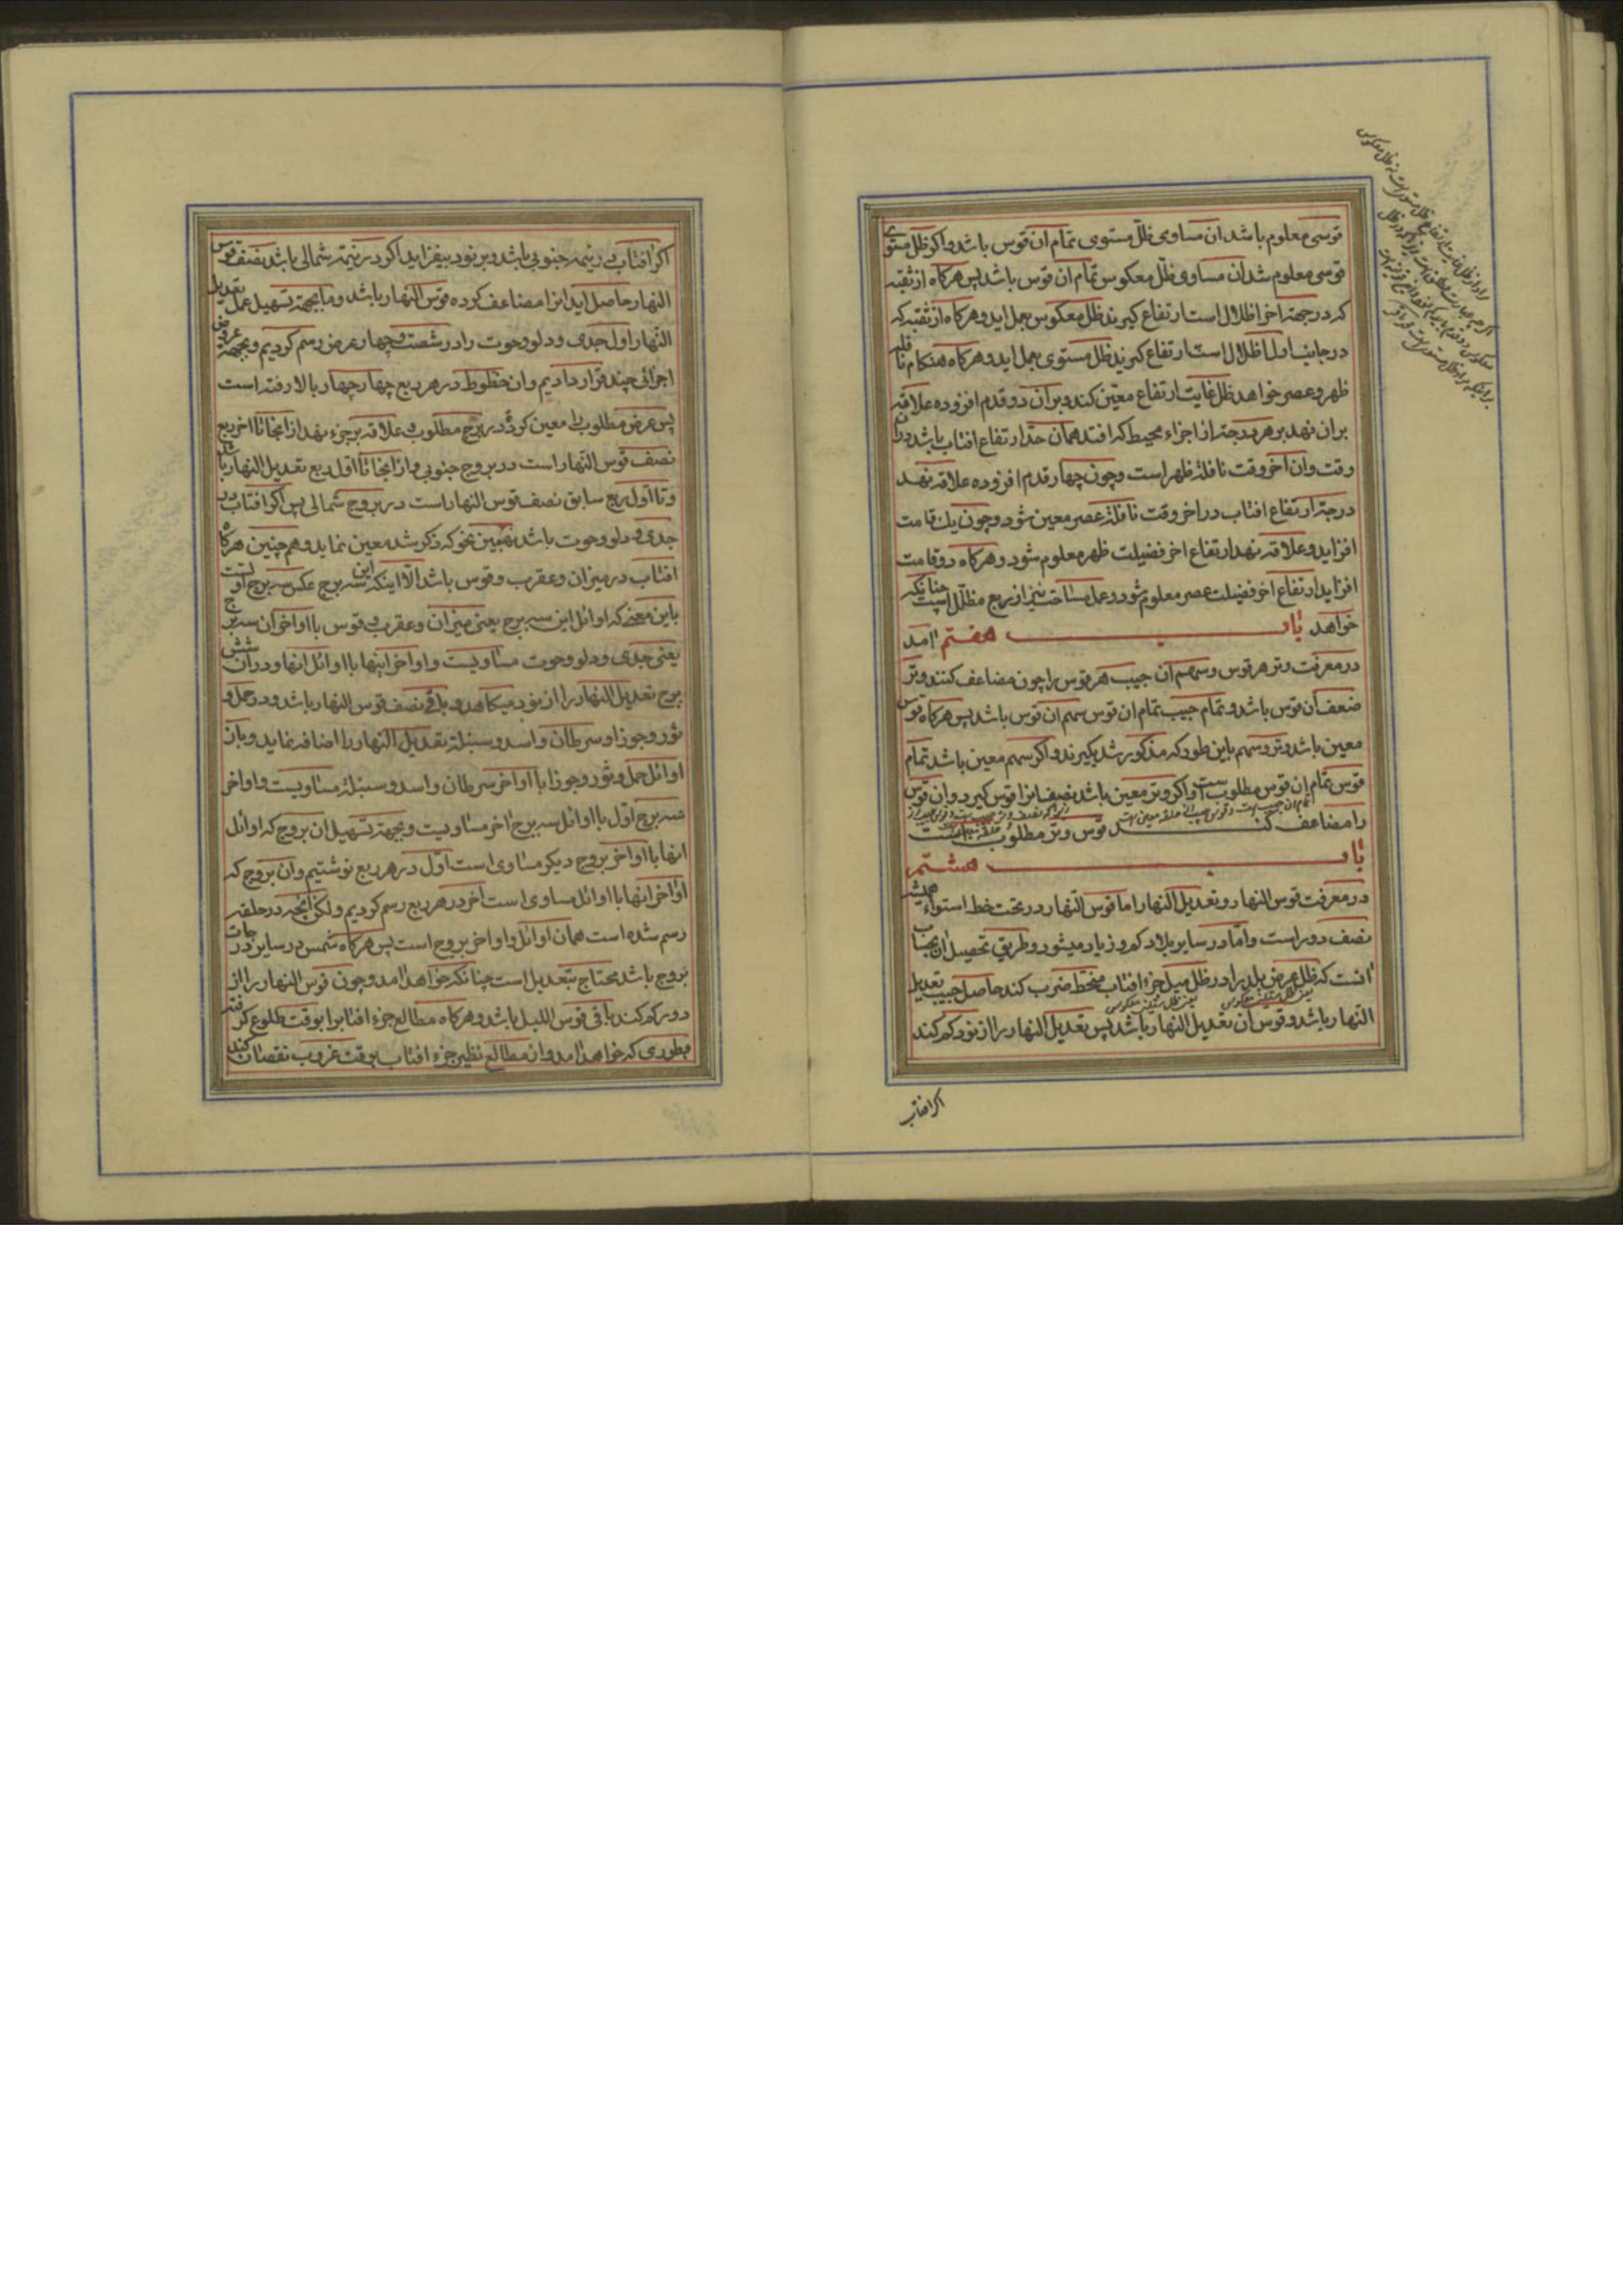 قوسی معلوم باشد ان مساوی ظل مستوی تمام ان قوس باشد و اکر ظل مستوی
قوسی معلوم شد ان مساوی ظل معکوس تمام ان قوس باشد پس هرکاه از ثقبه
که در جهة اخر اظلال است ارتفاع کیرند ظل معکوس بعمل اید و هرکاه از ثقبه که
در جانب اول اظلال است ارتفاع کیرند ظل مستوی بعمل اید و هرکاه هنکام نافله
ظهر و عصر خواهد ظل غایت ارتفاع معین کند و بر ان دو قدم افزوده علاقه
بران نهد بر هر درجه از اجزاء محیط که افتد همان حد ارتفاع افتاب باشد دران
وقت و ان آخر وقت نافلهٔ ظهر است و چون چهار قدم افزوده علاقه نهد
درجهٔ ارتفاع افتاب در اخر وقت نافلهٔ عصر معین شود و چون یك قامت
افزاید و علاقه نهد ارتفاع اخر فضیلت ظهر معلوم شود و هرکاه دو قامت
افزاید ارتفاع اخر فضیلت عصر معلوم شود و عمل مساحت نیز از ربع مظلل است چنانکه
خواهد امد باب هفتم
در معرفت وتر هر قوس و سهم آن جیب هر قوس را چون مضاعف کنند وتر
ضعف آن قوس باشد و تمام جیب تمام ان قوس سهم ان قوس باشد پس هرکاه قوس
معین باشد وتر و سهم باین طور که مذکور شد بکیرند و اکر سهم معین باشد تمام
قوس تمام ان قوس مطلوبست و اکر وتر معین باشد نصف انرا قوس کیرد و ان قوس
را مضاعف کند قوس وتر مطلوب است
باب هشتم
در معرفت قوس النهار و تعدیل النهار اما قوس النهار در تحت خط استواء همیشه
نصف دور است و امّا در سایر بلاد کم و زیاد میشود و طریق تحصیل ان بحساب
انست که ظل عرض بلد را در ظل میل جزء افتاب منحط ضرب کند حاصل جیب تعدیل
النهار باشد و قوس آن تعدیل النهار باشد پس تعدیل النهار را از نود کم کند
اکر افتاب
اکر افتاب در نیمه جنوبی باشد و بر نود بیفزاید اکر در نیمهٔ شمالی باشد نصف قوس
النهار حاصل اید انرا مضاعف کرده قوس النهار باشد و ما بجهة تسهیل عمل تعدیل
النّهار اول جدی و دلو و حوت را در شصت و چهار عرض رسم کردیم و بجهة عروض
اجزائی چند قرار دادیم و ان خطوط در هر ربع چهار چهار بالا رفته است
پس عرض مطلوب را معین کرده در برج مطلوب و علاقه بر جزء نهد از انجا تا اخر ربع
نصف قوس النهار است در بروج جنوبی و از انجا تا اول ربع تعدیل النهار باشد
و تا اول ربع سابق نصف قوس النهار است در بروج شمالی پس اکر افتاب در
جدی و دلو و حوت باشد بهمین نحو که ذکر شد معین نماید و هم چنین هرکاه
افتاب در میزان و عقرب و قوس باشد الّا اینکه این سه برج عکس سه برج اولست
باین معنی که اوائل این سه برج یعنی میزان و عقرب و قوس با اواخر آن سه برج
یعنی جدی و دلو و حوت مساویست و اواخر اینها با اوائل انها و در آن شش
برج تعدیل النهار را از نود میکاهد و باقی نصف قوس النهار باشد و در حمل و
ثور و جوزا و سرطان و اسد و سنبله تعدیل النهار را اضافه نماید و باز
اوائل حمل و ثور و جوزا با اواخر سرطان و اسد و سنبله مساویست و اواخر
سه برج اول با اوائل سه برج اخر مساویست و بجهة تسهیل ان بروج که اوائل
انها با اواخر بروج دیکر مساوی است اول در هر ربع نوشتیم و ان بروج که
اواخر انها با اوائل مساوی است آخر در هر ربع رسم کردیم و لکن آنچه در حلقه
رسم شده است همان اوائل و اواخر بروج است پس هرکاه شمس در سایر درجات
بروج باشد محتاج بتعدیل است چنانکه خواهد امد و چون قوس النهار را از
دور کم کند باقی قوس اللیل باشد و هرکاه مطالع جزء افتابرا بوقت طلوع کرفته
بطوری که خواهد امد و از مطالع نظیر جزء افتاب بوقت غروب نقصان کند